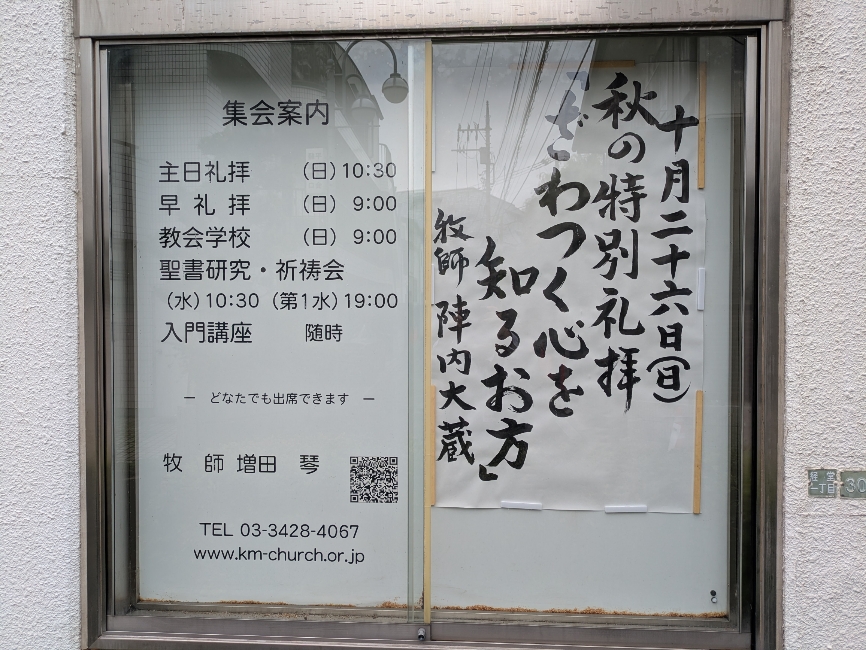 集会案内
主日礼拝 (日) 10:30
早礼拝 (日) 9:00
教会学校 (日) 9:00
聖書研究・祈祷会
(水) 10:30 (第1水) 19:00
入門講座 随時
― どなたでも出席できます ―
牧師 増田 琴
TEL 03-3428-4067
www.km-church.or.jp
十月二十六日(日)
秋の特別礼拝
「ざわつく心を
知るお方」
牧師 陣内大蔵
経堂
一丁目
30